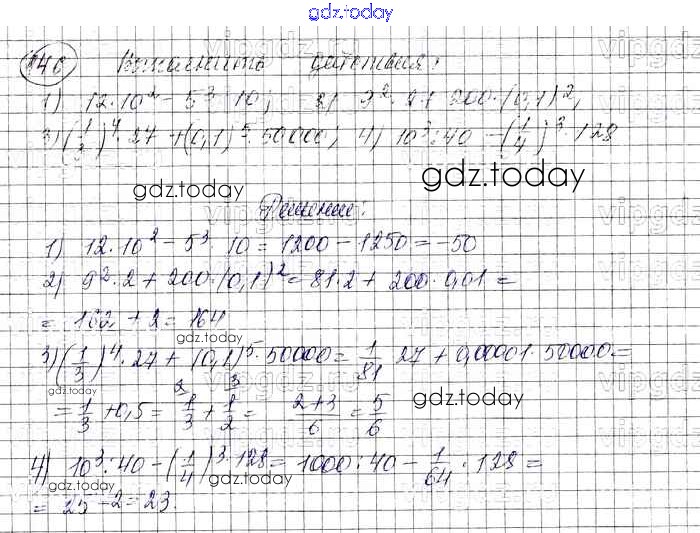 gdz.today
146 Выполнить действия:
1) 12·10² – 5³·10; 2) 9²·2+200·(0,1)²;
3) (1/3)⁴·27+(0,1)⁵·50000; 4) 10³:40–(1/4)³·128
gdz.today
gdz.today
Решение:
1) 12·10² – 5³·10 = 1200 – 1250 = –50
2) 9²·2 + 200·(0,1)² = 81·2 + 200·0,01 =
= 162 + 2 = 164
gdz.today
3) (1/3)⁴·27 + (0,1)⁵·50000 = 1/81·27 + 0,00001·50000 =
gdz.today
= 1/3 + 0,5 = 1/3 + 1/2 = 2+3/6 = 5/6
gdz.today
gdz.today
4) 10³:40 – (1/4)³·128 = 1000:40 – 1/64·128 =
gdz.today
gdz.today
= 25 – 2 = 23.